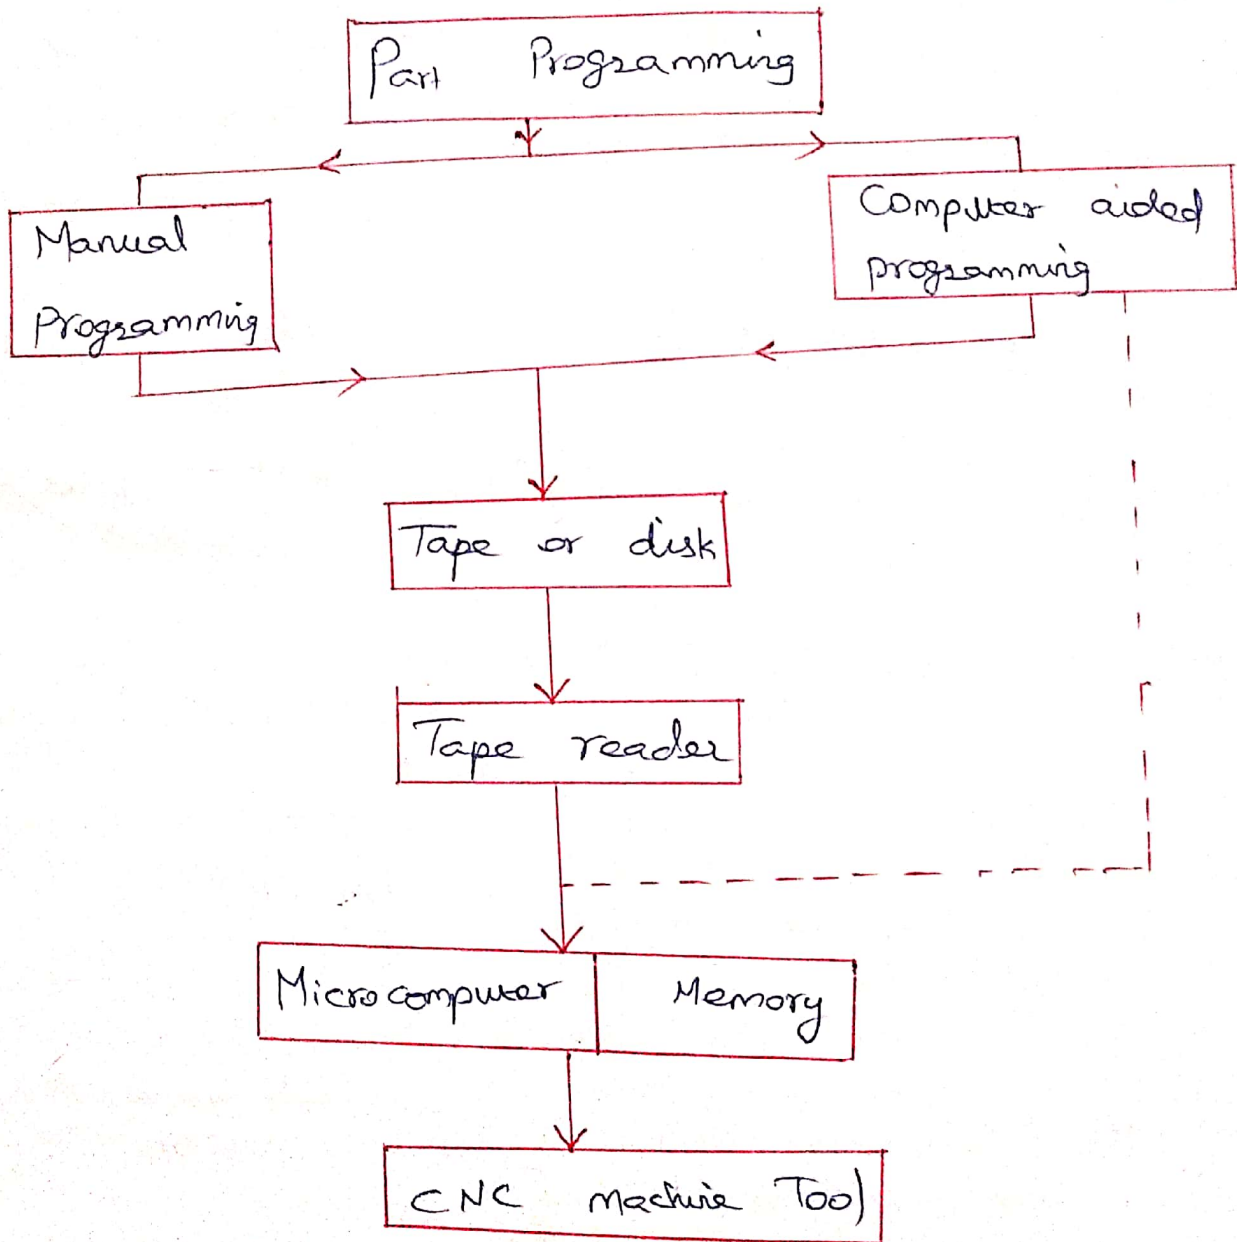 Part Programming
Manual
Programming
Computer aided
programming
Tape or disk
Tape reader
Microcomputer Memory
CNC machine Tool